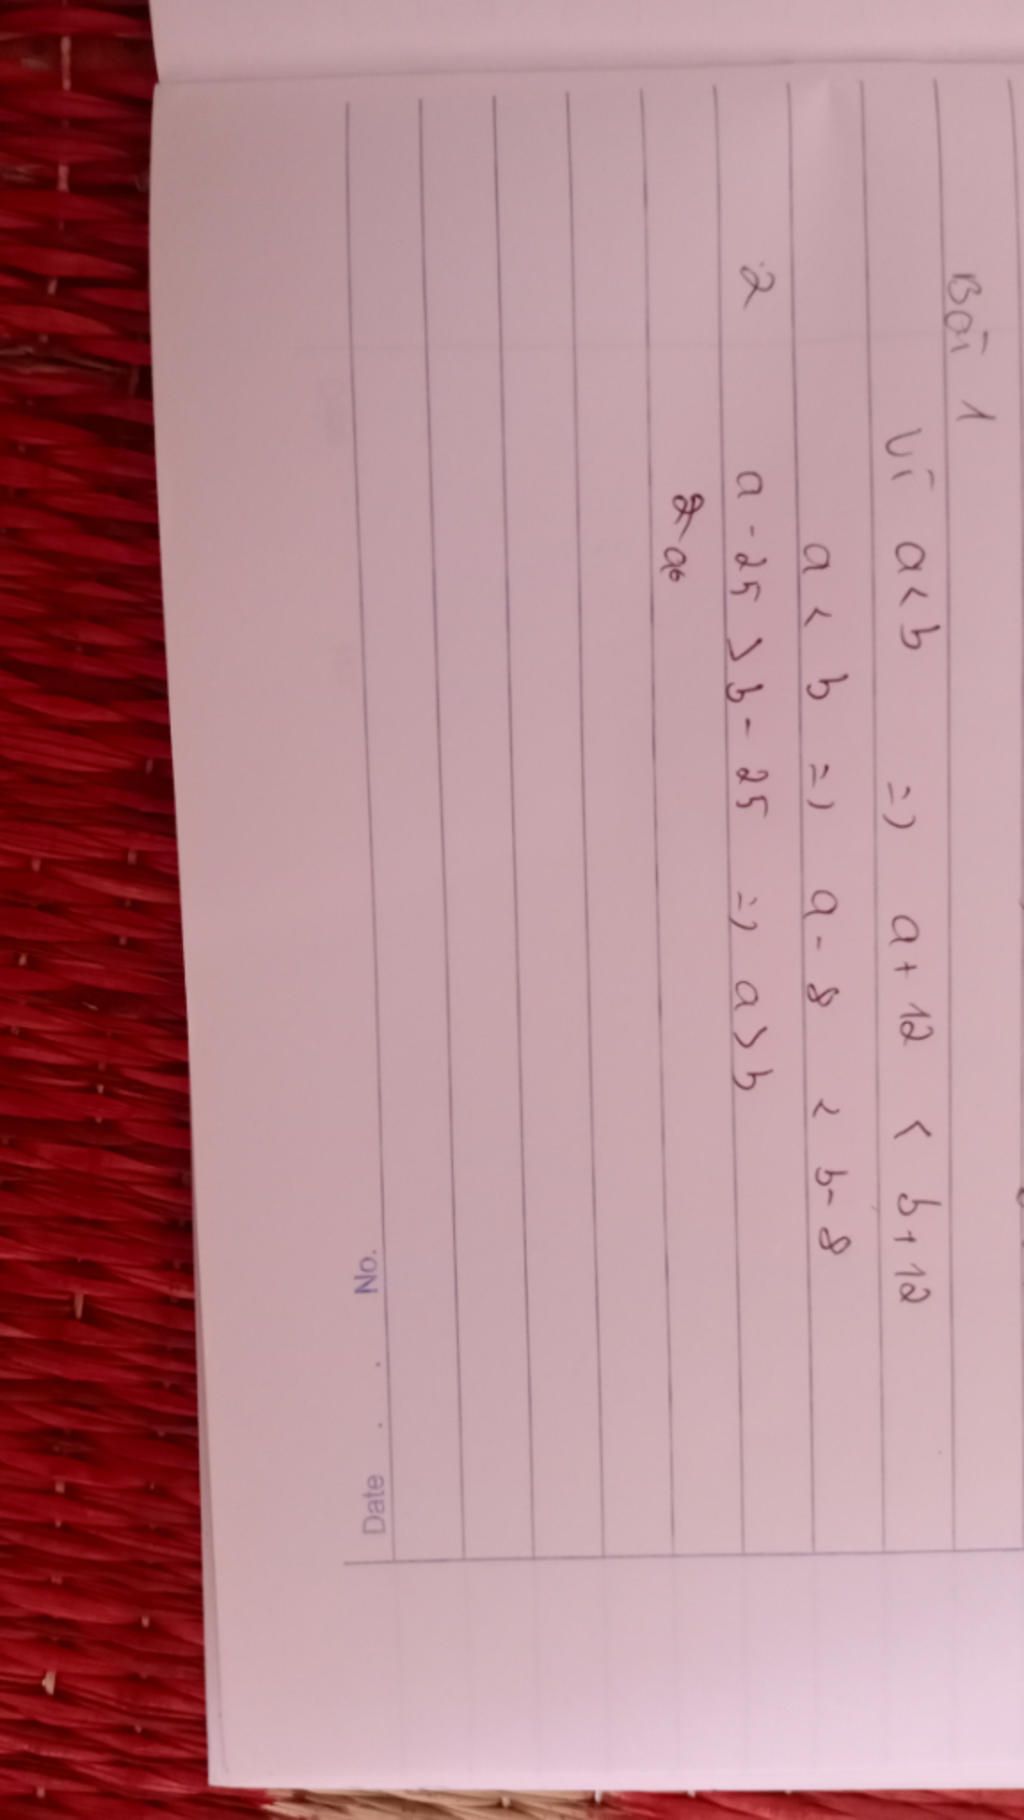 Bài 1
Vì a < b => a + 12 < b + 12
a < b => a - 8 < b - 8
2 a - 25 > b - 25 => a > b
Date . . No.